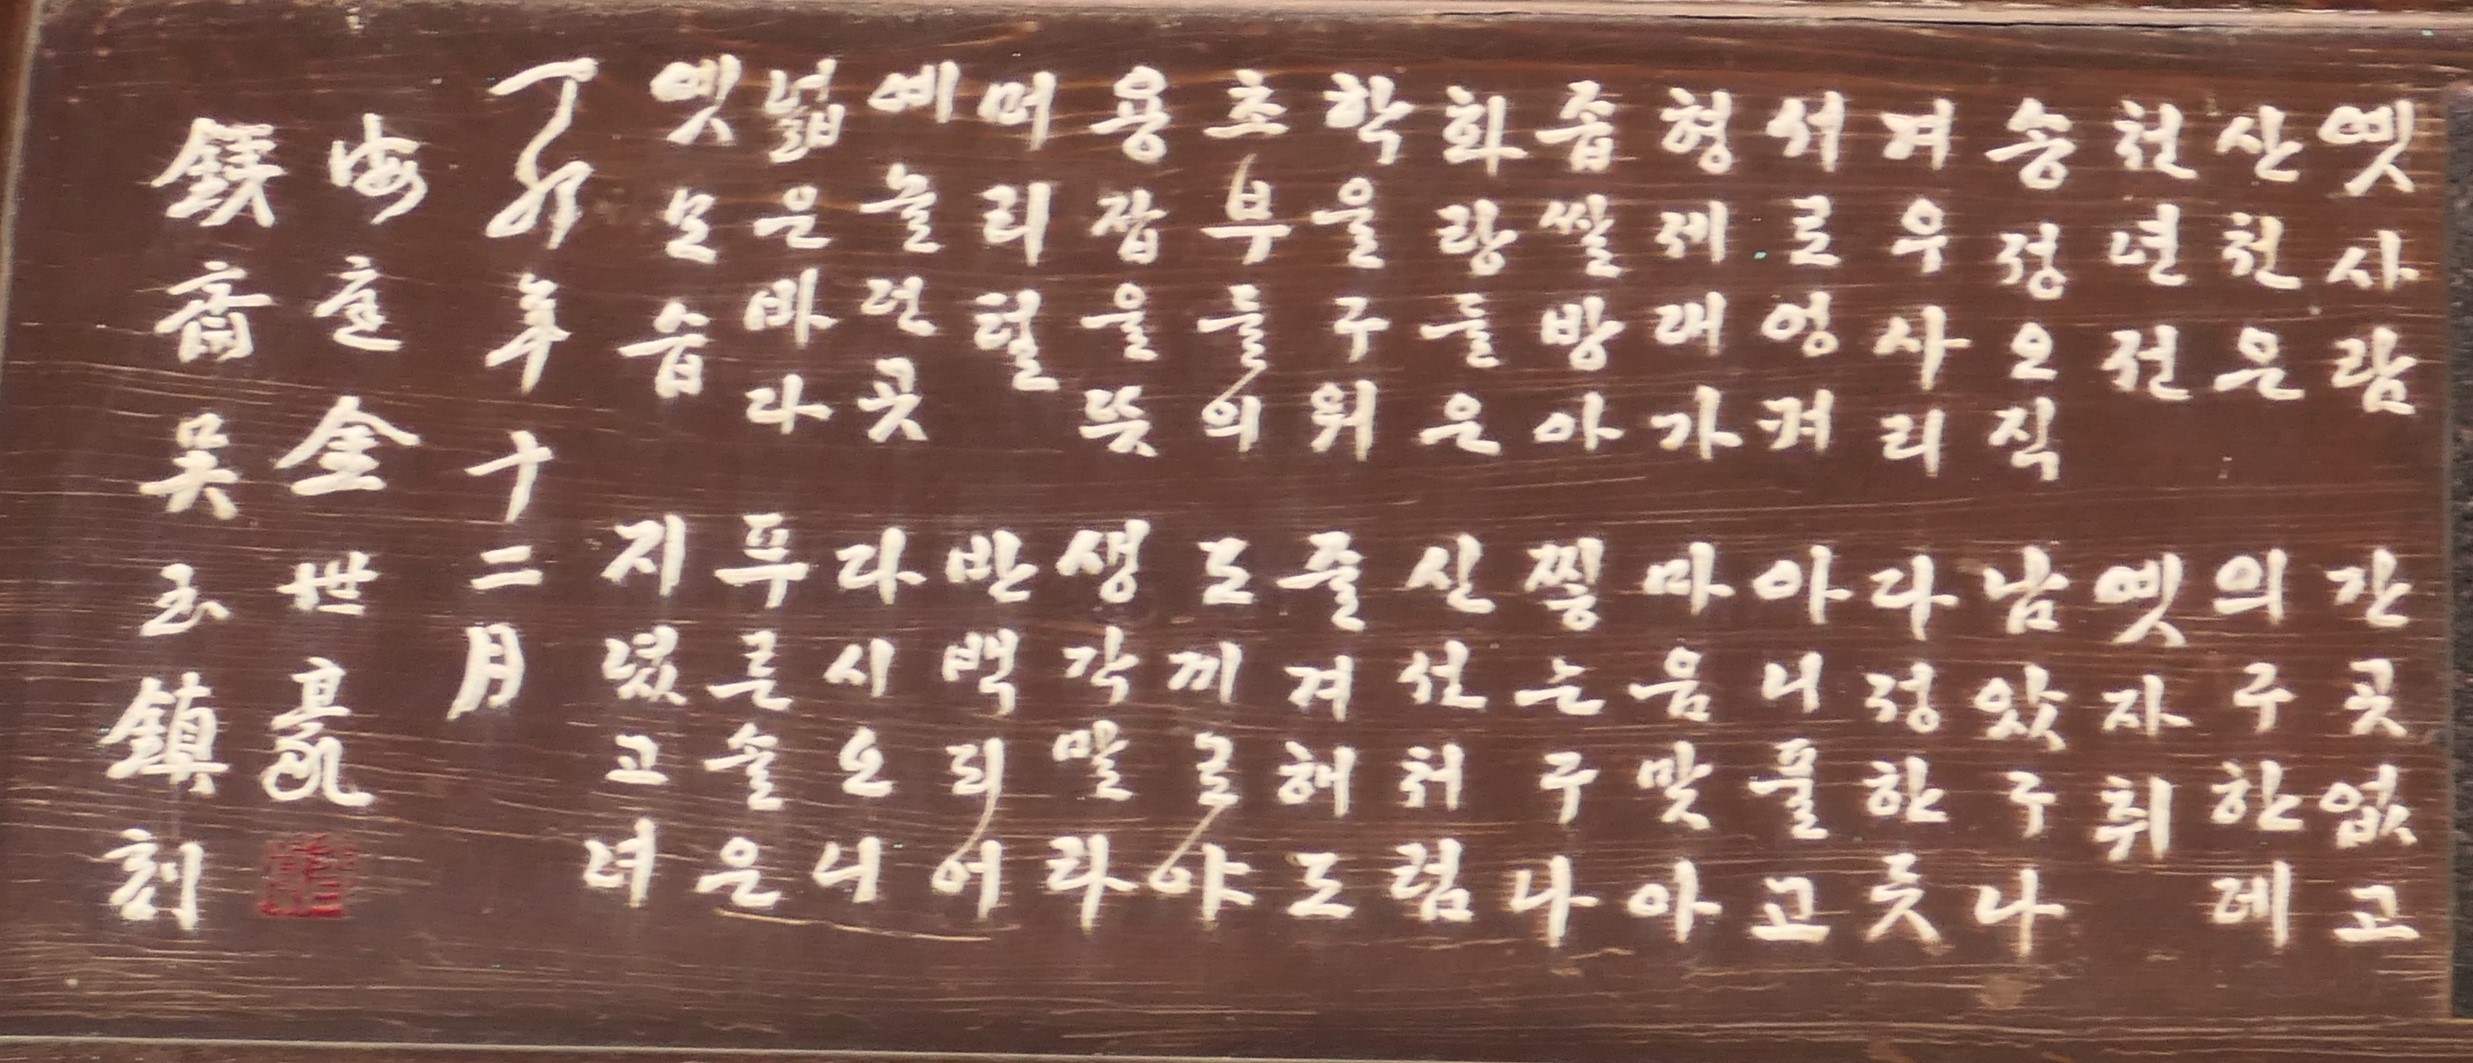 옛사람 간곳없고
산천은 의구한데
천년전 옛자취
송정오직 남았구나
겨우사리 다정한듯
서로엉켜 아니풀고
형제대가 마음맞아
좁쌀방아 찧는구나
화랑들은 신선처럼
학을구워 즐겨해도
초부들의 도끼로야
용잡을뜻 생각말라
머리털 반백되어
예놀던곳 다시오니
넓은바다 푸른솔은
옛모습 지녔고녀
丁卯年十二月
海 金世豪
鐵齋吳玉鎮刻